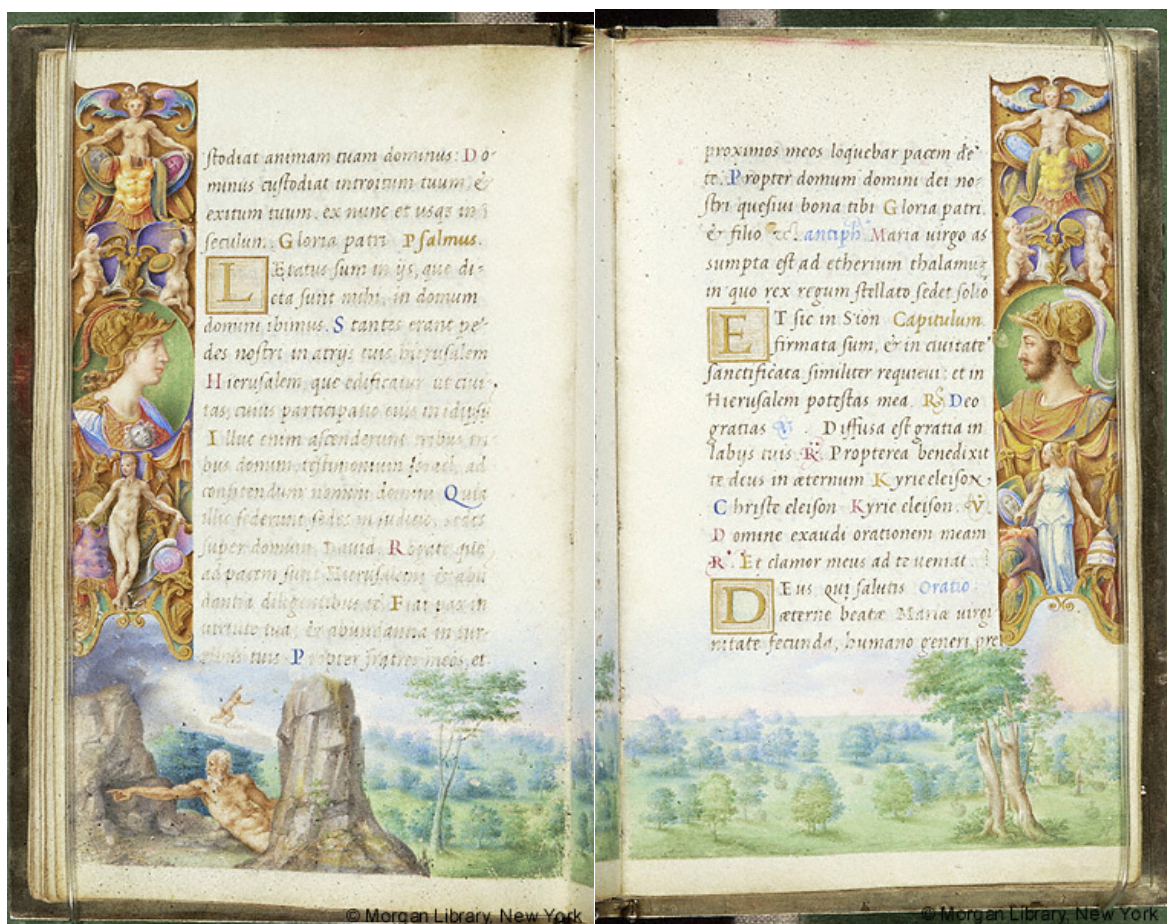 stodiat animam tuam dominus: Do-
minus custodiat introitum tuum &
exitum tuum. ex nunc et usqz in
seculun. Gloria patri Psalmus.
LEtatus sum in ijs, que di-
cta sunt mihi, in domum
domini ibimus. Stantes erant pe-
des nostri in atrijs tuis hierusalem
Hierusalem, que edificatur ut ciui
tas, cuius participatio eius in idipsū
Illuc enim ascenderunt tribus, tri
bus domini, testimonium Israel, ad
confitendum nomini domini Quia
illic sederunt sedes in iudicio, sedes
super domum Dauid. Rogate que
ad pacem sunt Hierusalem, & abū
dantia diligentibus te. Fiat pax in
uirtute tua, & abundantia in tur-
ribus tuis Propter fratres meos, et
proximos meos loquebar pacem de
te. Propter domum domini dei no-
stri quesiui bona tibi Gloria patri.
& filio &c. antiph Maria uirgo as
sumpta est ad etherium thalamuz
in quo rex regum stellato sedet solio
ET sic in Sion Capitulum.
firmata sum, & in ciuitate
sanctificata similiter requieui: et in
Hierusalem potestas mea. R Deo
gratias V. Diffusa est gratia in
labijs tuis R Propterea benedixit
te deus in æternum Kyrie eleison.
Christe eleison Kyrie eleison. V.
Domine exaudi orationem meam
R. Et clamor meus ad te ueniat.
DEus qui salutis Oratio
æterne beatæ Mariæ uirgi
nitate fecunda, humano generi pre
© Morgan Library, New York
© Morgan Library, New York